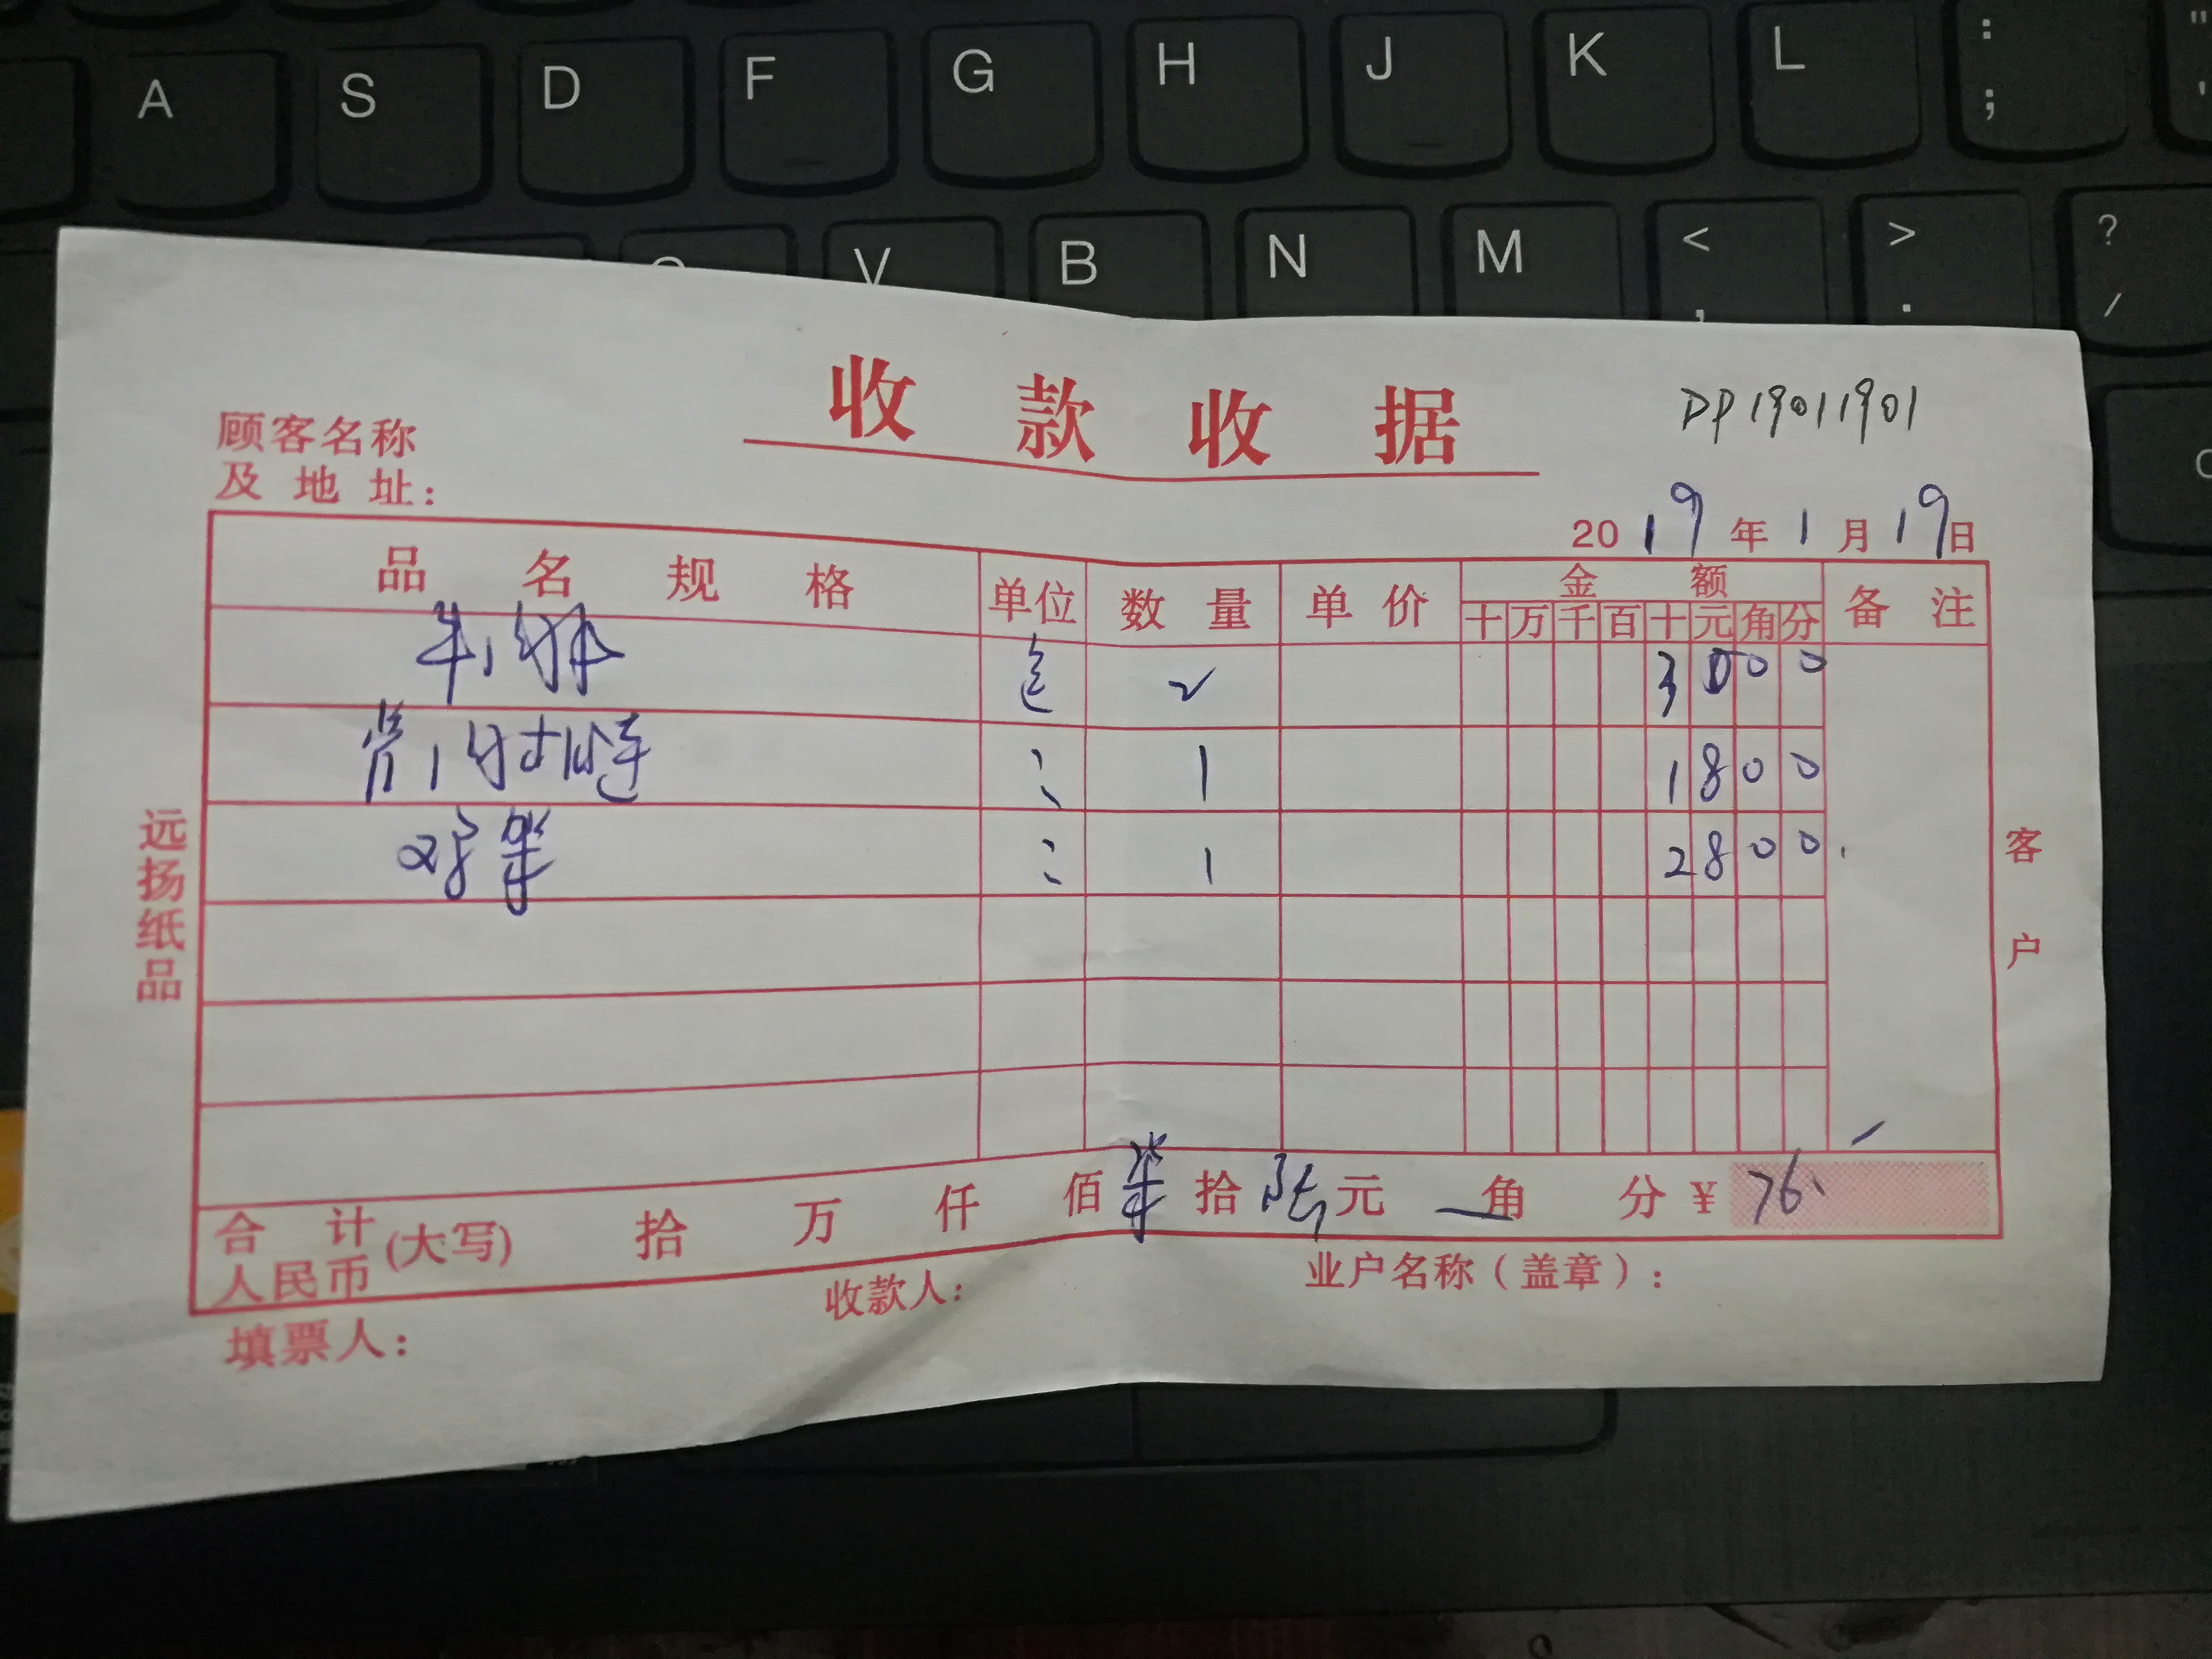 A S D F G H J K L : ;
V B N M < , > . ? /
收款收据
DP19011901
顾客名称
及地址:
2019年1月19日
品名规格 单位 数量 单价 金额 备注
十万千百十元角分
包 2 3000
1 1800
1 2800
远扬纸品
客户
合计
人民币
(大写) 拾 万 仟 佰 柒 拾 陆 元 角 分 ¥ 76
收款人:
业户名称(盖章):
填票人: